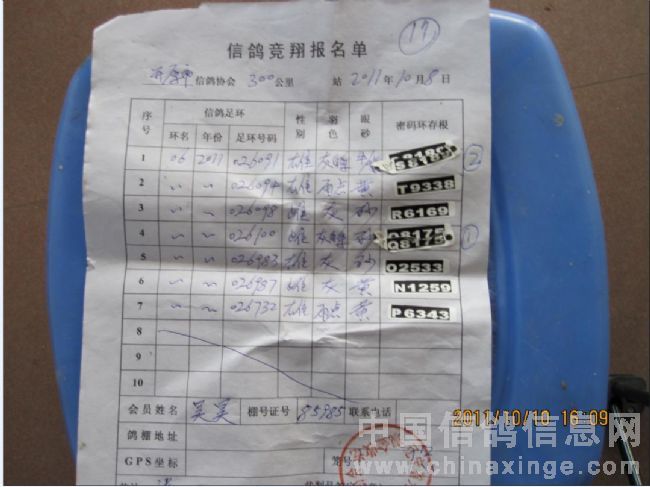 信鸽竞翔报名单 17
信鸽协会 300公里 站 2011年10月8日
序号 信鸽足环 性别 羽色 眼砂 密码环存根
环名 年份 足环号码
1 06 2011 026091 雄 灰 ②
2 〃 〃 026094 雄 雨点 黄 T9338
3 〃 〃 026098 雌 灰 砂 R6169
4 〃 〃 026100 雌 灰 砂 Q8175 ①
5 〃 〃 026983 雄 灰 砂 Q2533
6 〃 〃 026987 雄 灰 黄 N1259
7 〃 〃 026732 雄 雨点 黄 P6343
8
9
10
会员姓名 吴昊 棚号证号 85985 联系电话
鸽棚地址
GPS坐标 笼号
2011/10/10 16:09
中国信鸽信息网
www.chinaxinge.com